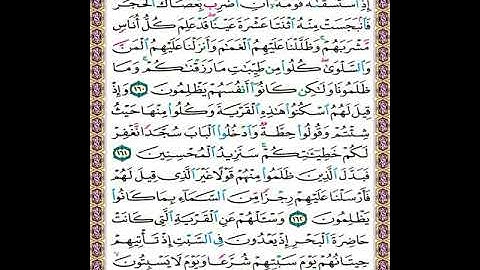 إِذِ ٱسْتَسْقَىٰهُ قَوْمُهُۥٓ أَنِ ٱضْرِب بِّعَصَاكَ ٱلْحَجَرَ
فَٱنۢبَجَسَتْ مِنْهُ ٱثْنَتَا عَشْرَةَ عَيْنًا قَدْ عَلِمَ كُلُّ أُنَاسٍ
مَّشْرَبَهُمْ وَظَلَّلْنَا عَلَيْهِمُ ٱلْغَمَٰمَ وَأَنزَلْنَا عَلَيْهِمُ ٱلْمَنَّ
وَٱلسَّلْوَىٰ كُلُوا۟ مِن طَيِّبَٰتِ مَا رَزَقْنَٰكُمْ وَمَا
ظَلَمُونَا وَلَٰكِن كَانُوٓا۟ أَنفُسَهُمْ يَظْلِمُونَ ١٦٠ وَإِذْ
قِيلَ لَهُمُ ٱسْكُنُوا۟ هَٰذِهِ ٱلْقَرْيَةَ وَكُلُوا۟ مِنْهَا حَيْثُ
شِئْتُمْ وَقُولُوا۟ حِطَّةٌ وَٱدْخُلُوا۟ ٱلْبَابَ سُجَّدًا نَّغْفِرْ
لَكُمْ خَطِيٓـَٰٔتِكُمْ سَنَزِيدُ ٱلْمُحْسِنِينَ ١٦١
فَبَدَّلَ ٱلَّذِينَ ظَلَمُوا۟ مِنْهُمْ قَوْلًا غَيْرَ ٱلَّذِى قِيلَ لَهُمْ
فَأَرْسَلْنَا عَلَيْهِمْ رِجْزًا مِّنَ ٱلسَّمَآءِ بِمَا كَانُوا۟
يَظْلِمُونَ ١٦٢ وَسْـَٔلْهُمْ عَنِ ٱلْقَرْيَةِ ٱلَّتِى كَانَتْ
حَاضِرَةَ ٱلْبَحْرِ إِذْ يَعْدُونَ فِى ٱلسَّبْتِ إِذْ تَأْتِيهِمْ
حِيتَانُهُمْ يَوْمَ سَبْتِهِمْ شُرَّعًا وَيَوْمَ لَا يَسْبِتُونَ